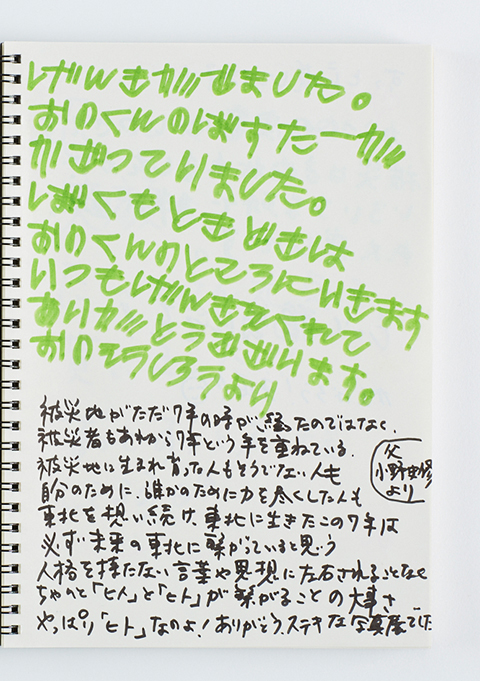 げんきがでました。
おのくんのぽすたーが
かざっていました。
ぼくもときどきは
おのくんのところにいきます
いつもげんきをくれて
ありがとうございます。
おのそうしろうより
被災地がただ7年の時が、経ったのではなく、
被災者もあれから7年という年を重ねている。
被災地に生まれ育った人もそうでない人も
自分のために、誰かのために力を尽くした人も
東北を想い続け、東北に生きたこの7年は
必ず未来の東北に繋がっていると思う
人格を持たない言葉や思想に左右されることなく
ちゃのと「ヒト」と「ヒト」が繋がることの大事さ…
やっぱり「ヒト」なのよ!ありがとう、ステキな写真展でした
父
小野
より